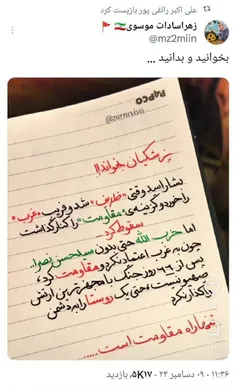 علی اکبر رائفی پور بازپست کرد
زهراسادات موسوی
@mz2miin
بخوانید و بدانید ...
PAPCO
پزشکیان بخواند!!
بشار اسد وقتی "ظریف" شد و فریب "غرب"
را خورد و گزینه‌ی "مقاومت" را کنار گذاشت
سقوط کرد
اما حزب الله حتی بدون سیدحسن نصرالله
چون به غرب اعتماد نکرد و مقاومت کرد،
پس از ۶۶ روز جنگ با مجهزترین ارتش
صهیونیست، حتی یک روستا را به دشمن
واگذار نکرد
تنها راه مقاومت است.....
۱۱:۳۶ · ۰۹ دسامبر ۲۴ · ۵K۱۷٫ بازدید